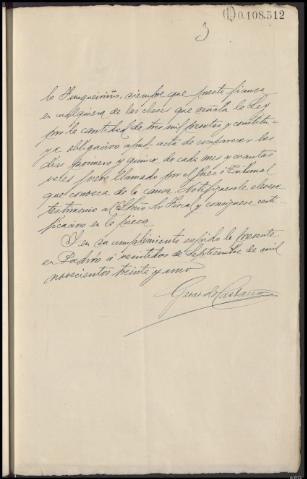 (1) 0.108.512
lo Junqueiriño, siempre que preste fianza
en cualquiera de las clases que señala la Ley
por la cantidad de tres mil pesetas y constitu-
ya obligacion apud acta de comparecer los
dias primero y quince de cada mes y cuantas
veces fuese llamado por el Juez o Tribunal
que conozca de la causa. Notifiquese
testimonio al Fiscal y consignese certi-
ficacion en la pieza.
Y en su cumplimiento expido la presente
en Padron á veintidos de Septiembre de mil
novecientos treinta y uno